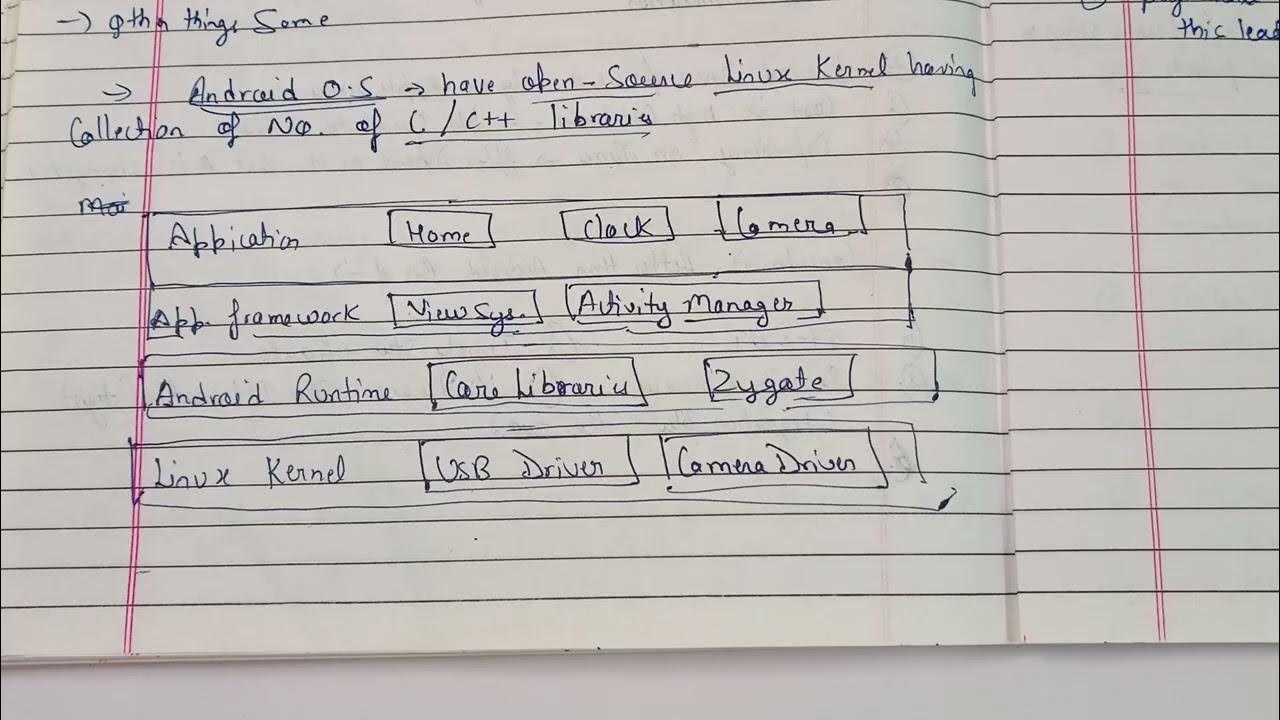 → Othr things Same
this lead
→ Android O.S → have open-Source Linux Kernel having
Collection of No. of C/C++ libraris
Appication Home Clock Camera
App. framework View Sys. Activity Manager
Android Runtime Core Libraris Zygate
Linux Kernel USB Driver Camera Driver